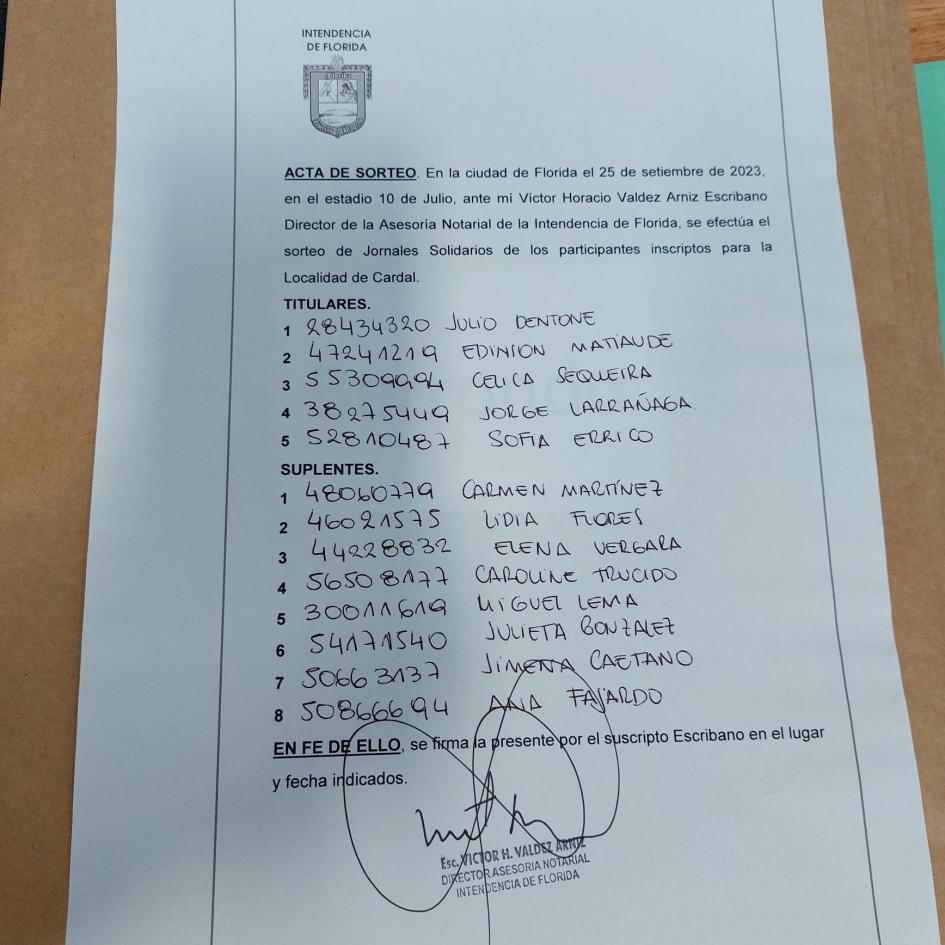 INTENDENCIA
DE FLORIDA
ACTA DE SORTEO. En la ciudad de Florida el 25 de setiembre de 2023,
en el estadio 10 de Julio, ante mí Víctor Horacio Valdez Arniz Escribano
Director de la Asesoría Notarial de la Intendencia de Florida, se efectúa el
sorteo de Jornales Solidarios de los participantes inscriptos para la
Localidad de Cardal.
TITULARES.
1 28434320 JULIO DENTONE
2 47241219 EDINSON MATIAUDE
3 55309994 CELICA SEQUEIRA
4 38275449 JORGE LARRAÑAGA.
5 52810487 SOFÍA ERRICO
SUPLENTES.
1 48060779 CARMEN MARTÍNEZ
2 46021575 LIDIA FLORES
3 44228832 ELENA VERGARA
4 56508177 CAROLINE TRUCIDO
5 30011619 MIGUEL LEMA
6 54171540 JULIETA GONZALEZ
7 50663137 JIMENA CAETANO
8 50866694 ANA FAJARDO
EN FE DE ELLO, se firma la presente por el suscripto Escribano en el lugar
y fecha indicados.
Esc. VICTOR H. VALDEZ ARNIZ
DIRECTOR ASESORIA NOTARIAL
INTENDENCIA DE FLORIDA